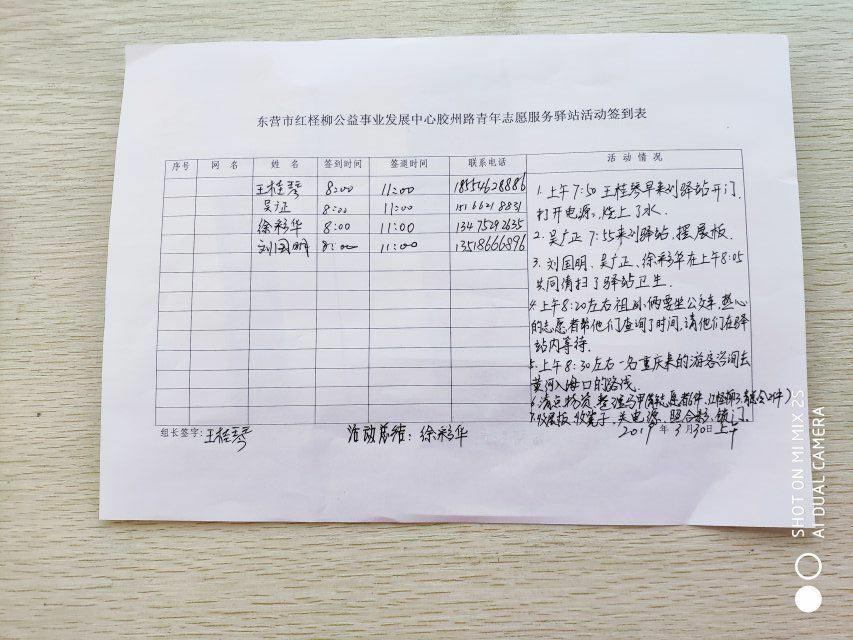 东营市红柽柳公益事业发展中心胶州路青年志愿服务驿站活动签到表
序号 网名 姓名 签到时间 签退时间 联系电话 活动情况
王桂琴 8:00 11:00 18554628886
吴广正 8:00 11:00 15166218831
徐彩华 8:00 11:00 13475292635
刘国明 8:00 11:00 13518666896
1.上午7:50王桂琴早来到驿站开门,
打开电源,烧上了水.
2.吴广正7:55来到驿站,摆展板.
3.刘国明、吴广正、徐彩华在上午8:05
共同清扫了驿站卫生.
4.上午8:20左右祖孙俩要坐公交车,热心
的志愿者帮他们查询了时间,请他们在驿
站内等待.
5.上午8:30左右一名重庆来的游客咨询去
黄河入海口的路线.
6.清点物资,整理马甲
7.收展板,收凳子,关电源,照合影,锁门.
组长签字:王桂琴 活动总结:徐彩华 2019年3月30日上午
SHOT ON MI MIX 2S
AI DUAL CAMERA